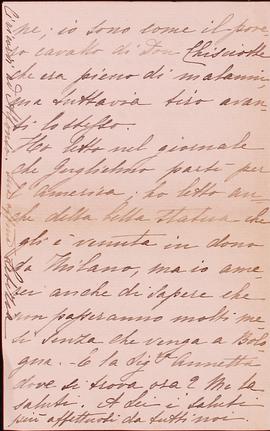 ne, io sono come il pove-
ro cavallo di Don Chisciotte
che era pieno di malanni
ma tuttavia tiro avan-
ti lo stesso.
Ho letto nel giornale
che Guglielmo partì per
l'America; ho letto an-
che della bella statua che
gli è venuta in dono
da Milano, ma io ame-
rei anche di sapere che
non passeranno molti me-
si senza che venga a Bolo-
gna. E la Sig.ra Annetta
dove si trova ora? Me la
saluti. A Lei i saluti
più affettuosi da tutti noi.